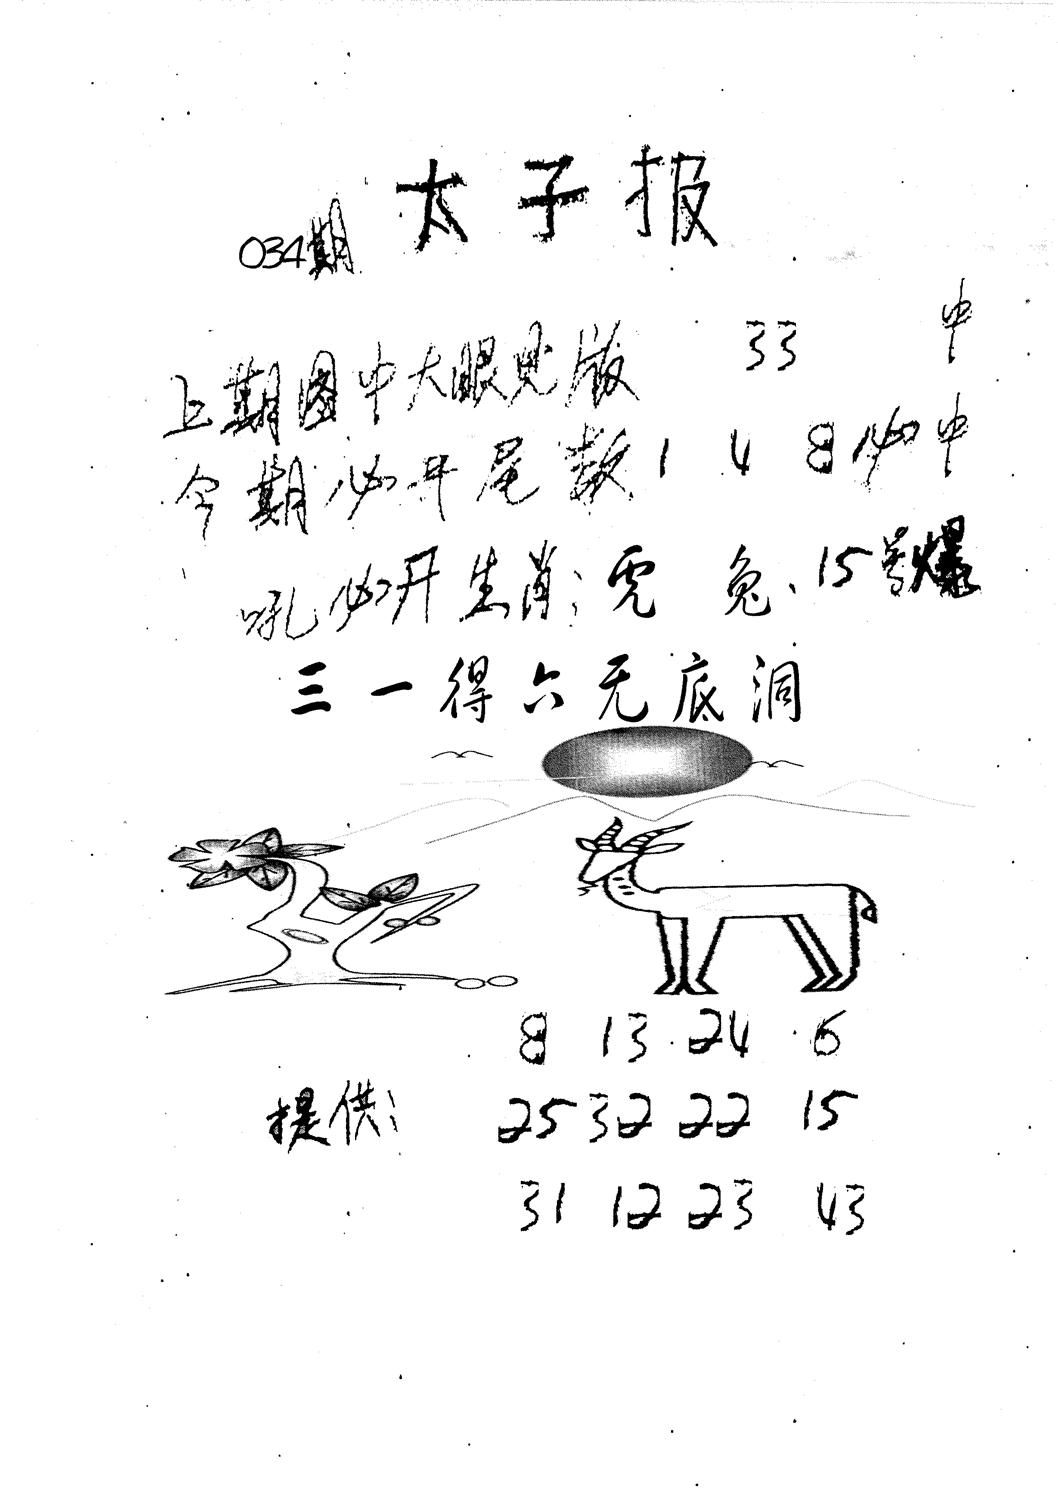 太子报
034期
上期图中大眼见版 33 中
今期必开尾数 1 4 8 必中
吼必开生肖：虎 兔、15号爆
三一得六无底洞
8 13 24 6
提供： 25 32 22 15
31 12 23 43